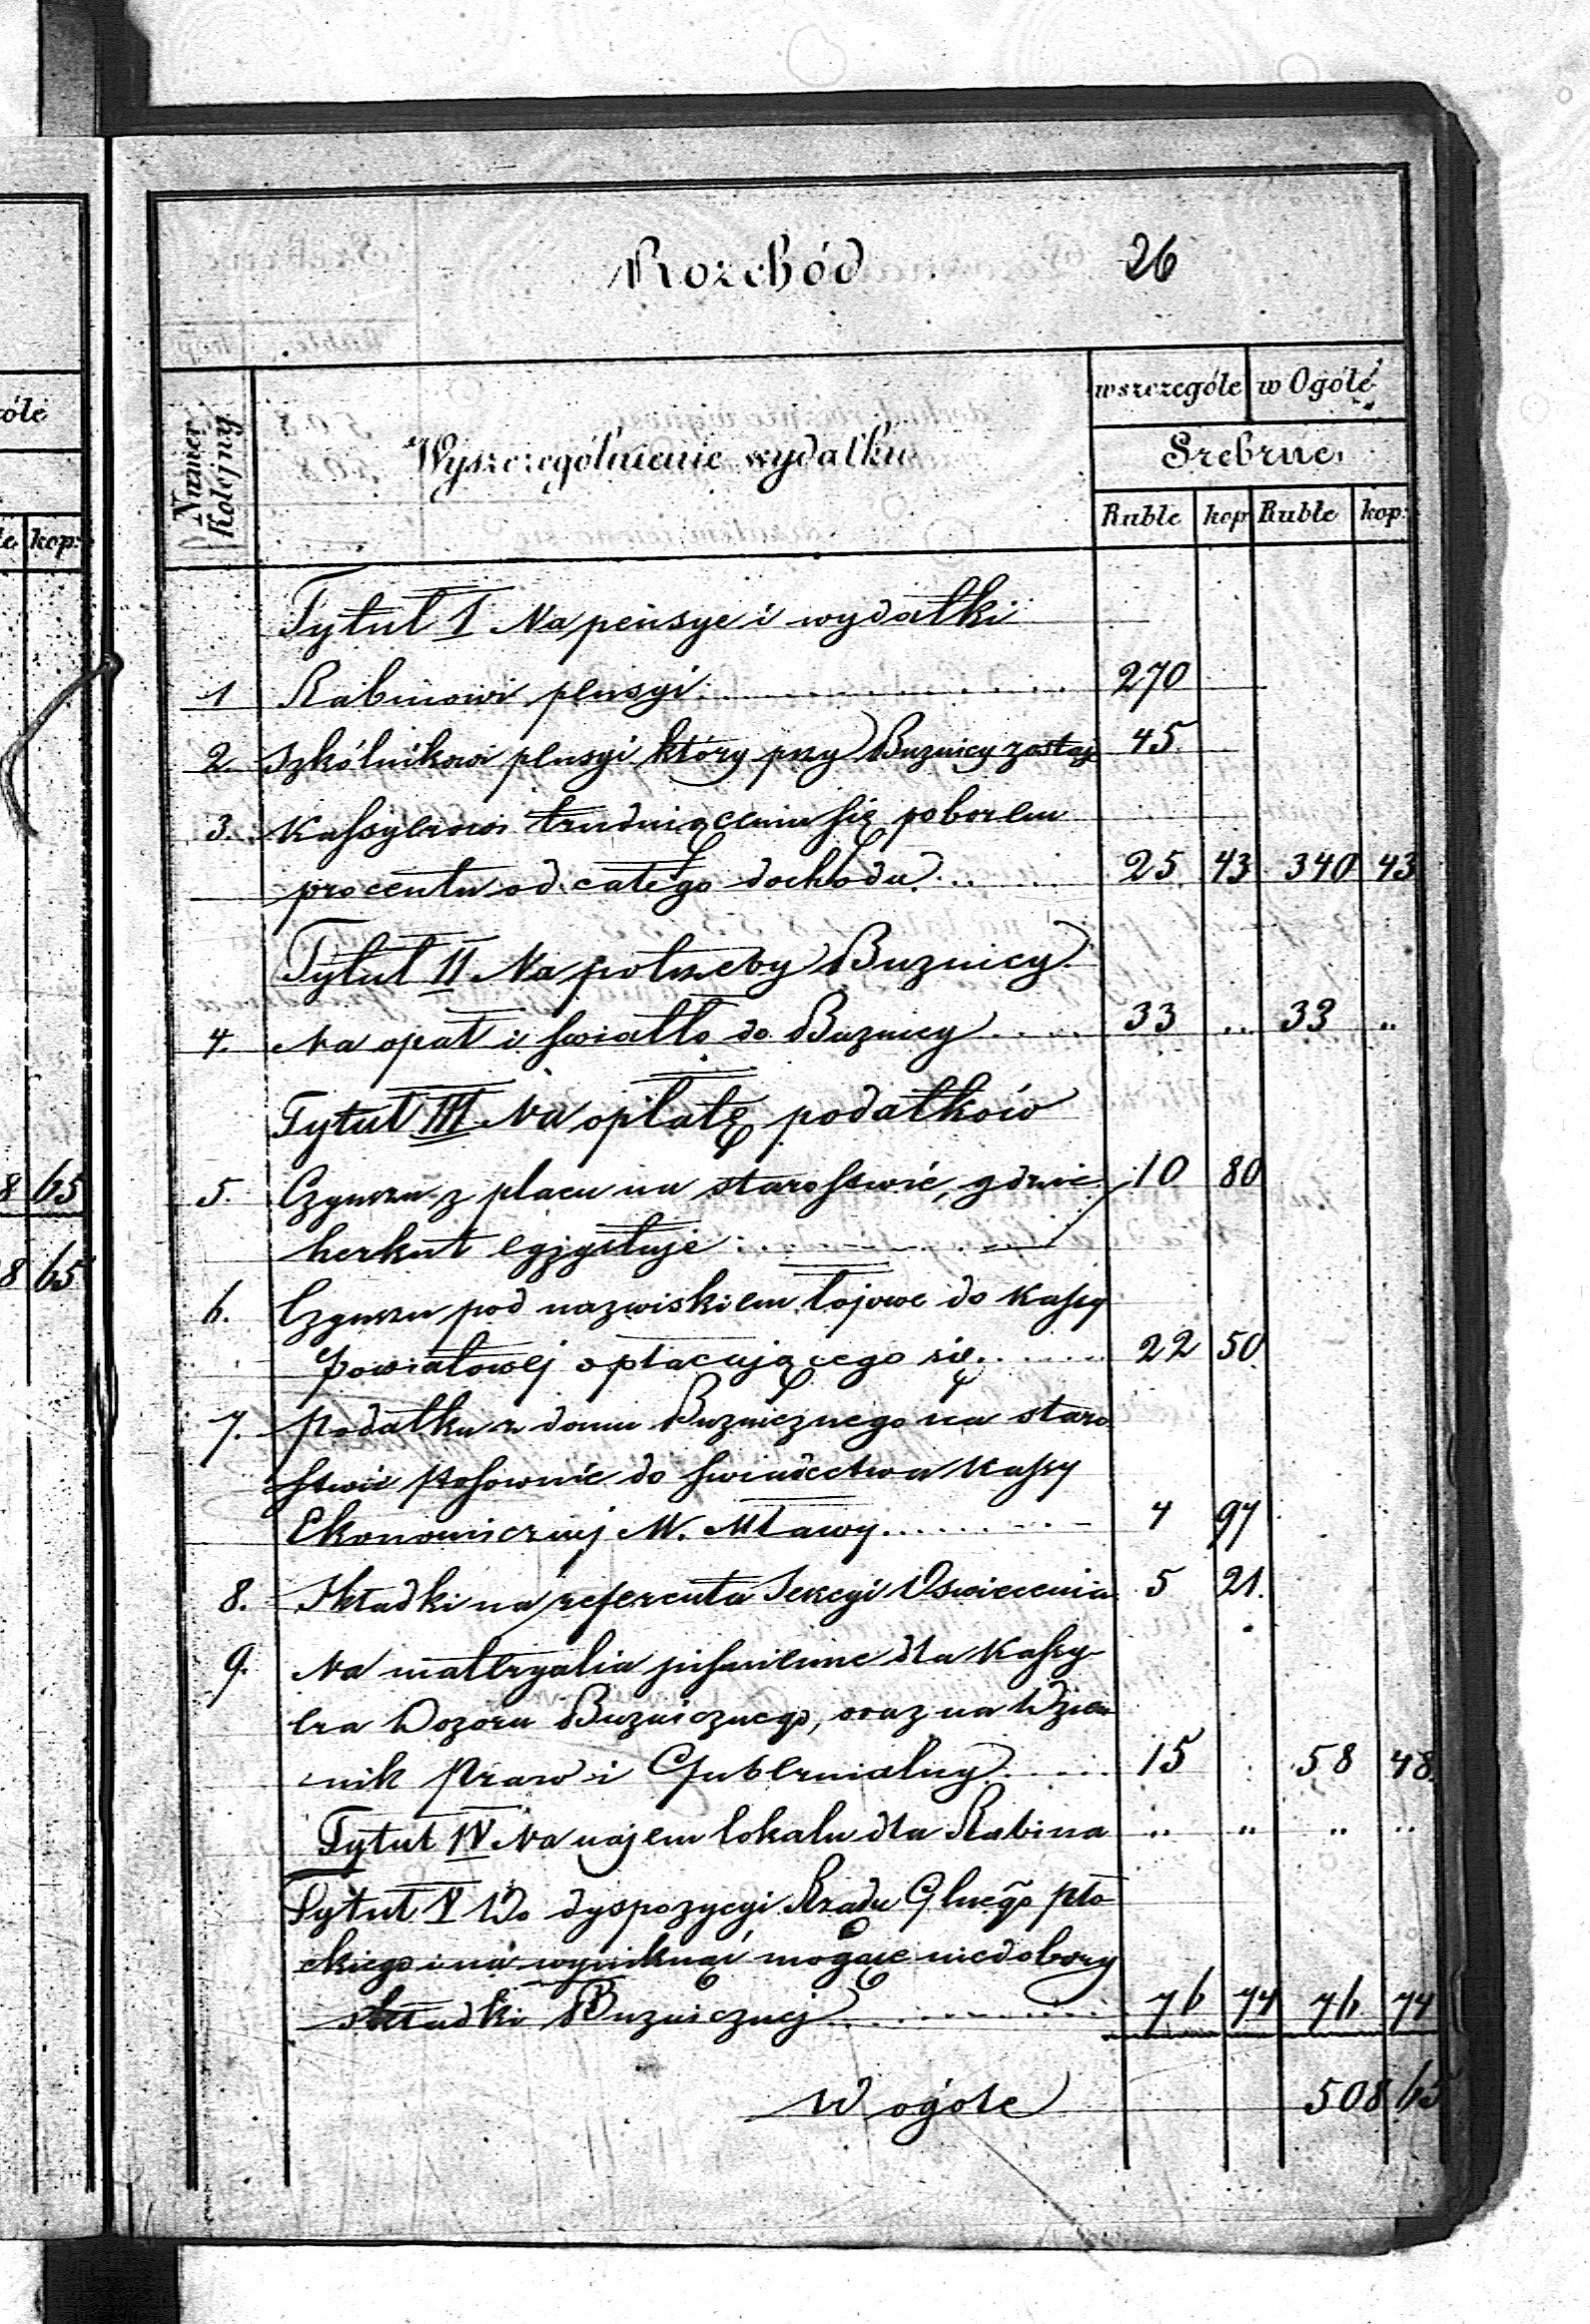 Rozchód 26
Numer Kolejny
Wyszczególnienie wydatku
wszczególe w Ogóle
Srebrne
Ruble kop Ruble kop:
Tytuł I Na pensye i wydatki
1 Rabinowi pensyi 270
2. Szkólnikowi pensyi który przy Buznicy zostaje 45
3. Kassyerowi trudniącemu się poborem
procentu od całego dochodu 25 43 340 43
Tytuł II Na potrzeby Buznicy
4. Na opał i światło do Buznicy 33 .. 33 ..
Tytuł III Na opłatę podatków
5. Czynszu z placu na starostwie, gdzie 10 80
herkut egzystuje
6. Czynszu pod nazwiskiem łojowe do Kassy
Powiatowej opłacującego się 22 50
7. Podatku z domu Buznicznego na staro
stwie stosownie do świadectwa Kassy
Ekonomicznej M. Mławy 4 97
8. Składki na referenta Sekcyi Oswiecenia 5 21.
9. Na materyalia piśmienne dla Kassy-
era Dozoru Buznicznego, oraz na Dzien
nik Praw i Gubernialny 15 58 48
Tytuł IV Na najem lokalu dla Rabina .. .. .. ..
Tytuł V Do dyspozycyi Rządu Glnego Pło
ckiego i na wyniknąć mogące niedobory
składki Buznicznej 76 74 76 74
W ogóle 508 65
óle
le kop:
8 65
8 65